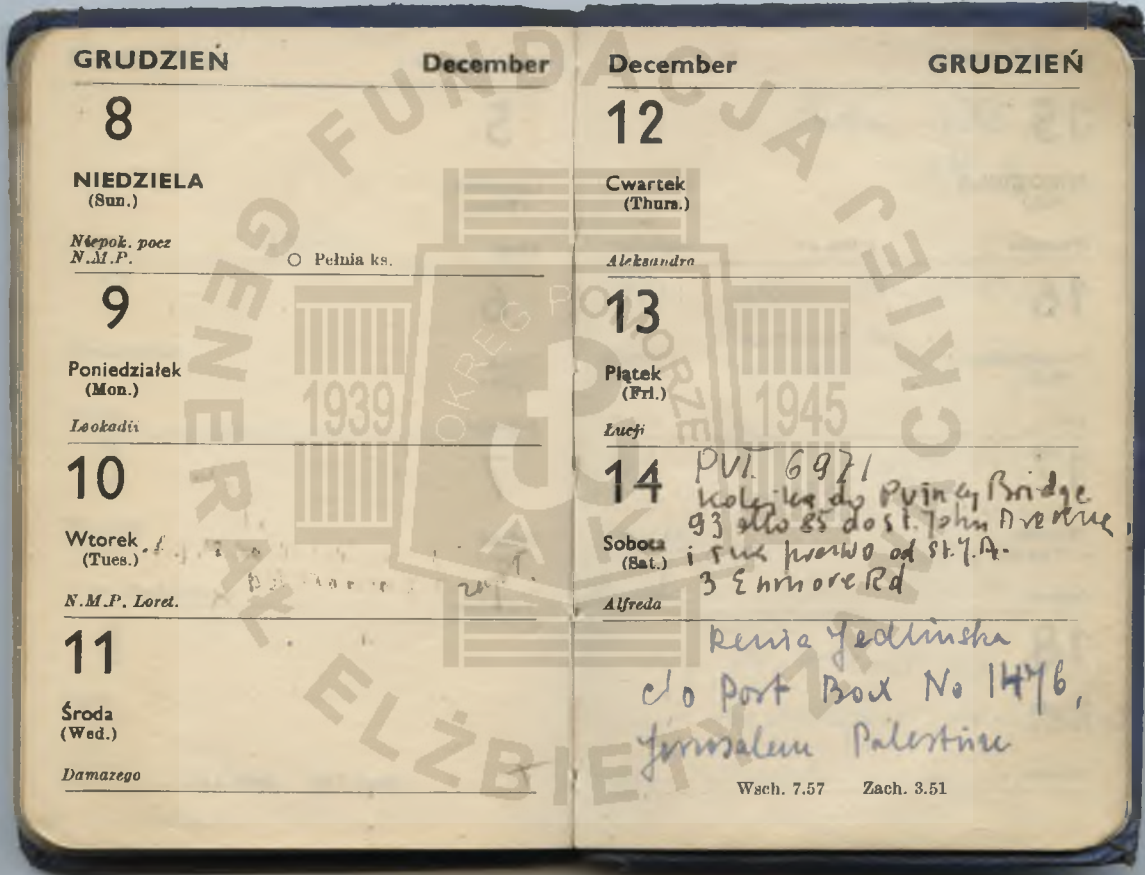 GRUDZIEŃ December
8
NIEDZIELA
(Sun.)
Niepok. pocz
N.M.P.
○ Pełnia ks.
9
Poniedziałek
(Mon.)
Leokadii
10
Wtorek
(Tues.)
N.M.P. Loret.
11
Środa
(Wed.)
Damazego
December GRUDZIEŃ
12
Cwartek
(Thurs.)
Aleksandra
13
Piątek
(Fri.)
Łucji
14
PUT. 6971
Kolejką do Putney Bridge
93 albo 85 do St. John Avenue,
Sobota
(Sat.)
i prawo od St. J. A.
3 Enmore Rd
Alfreda
Renia Jedlinska
c/o Post Box No 1476,
Jerusalem Palestine
Wsch. 7.57 Zach. 3.51
FUNDACJA GENERAŁ ELŻBIETY ZAWACKIEJ
OKRĘG POMORZE
1939
1945
AK